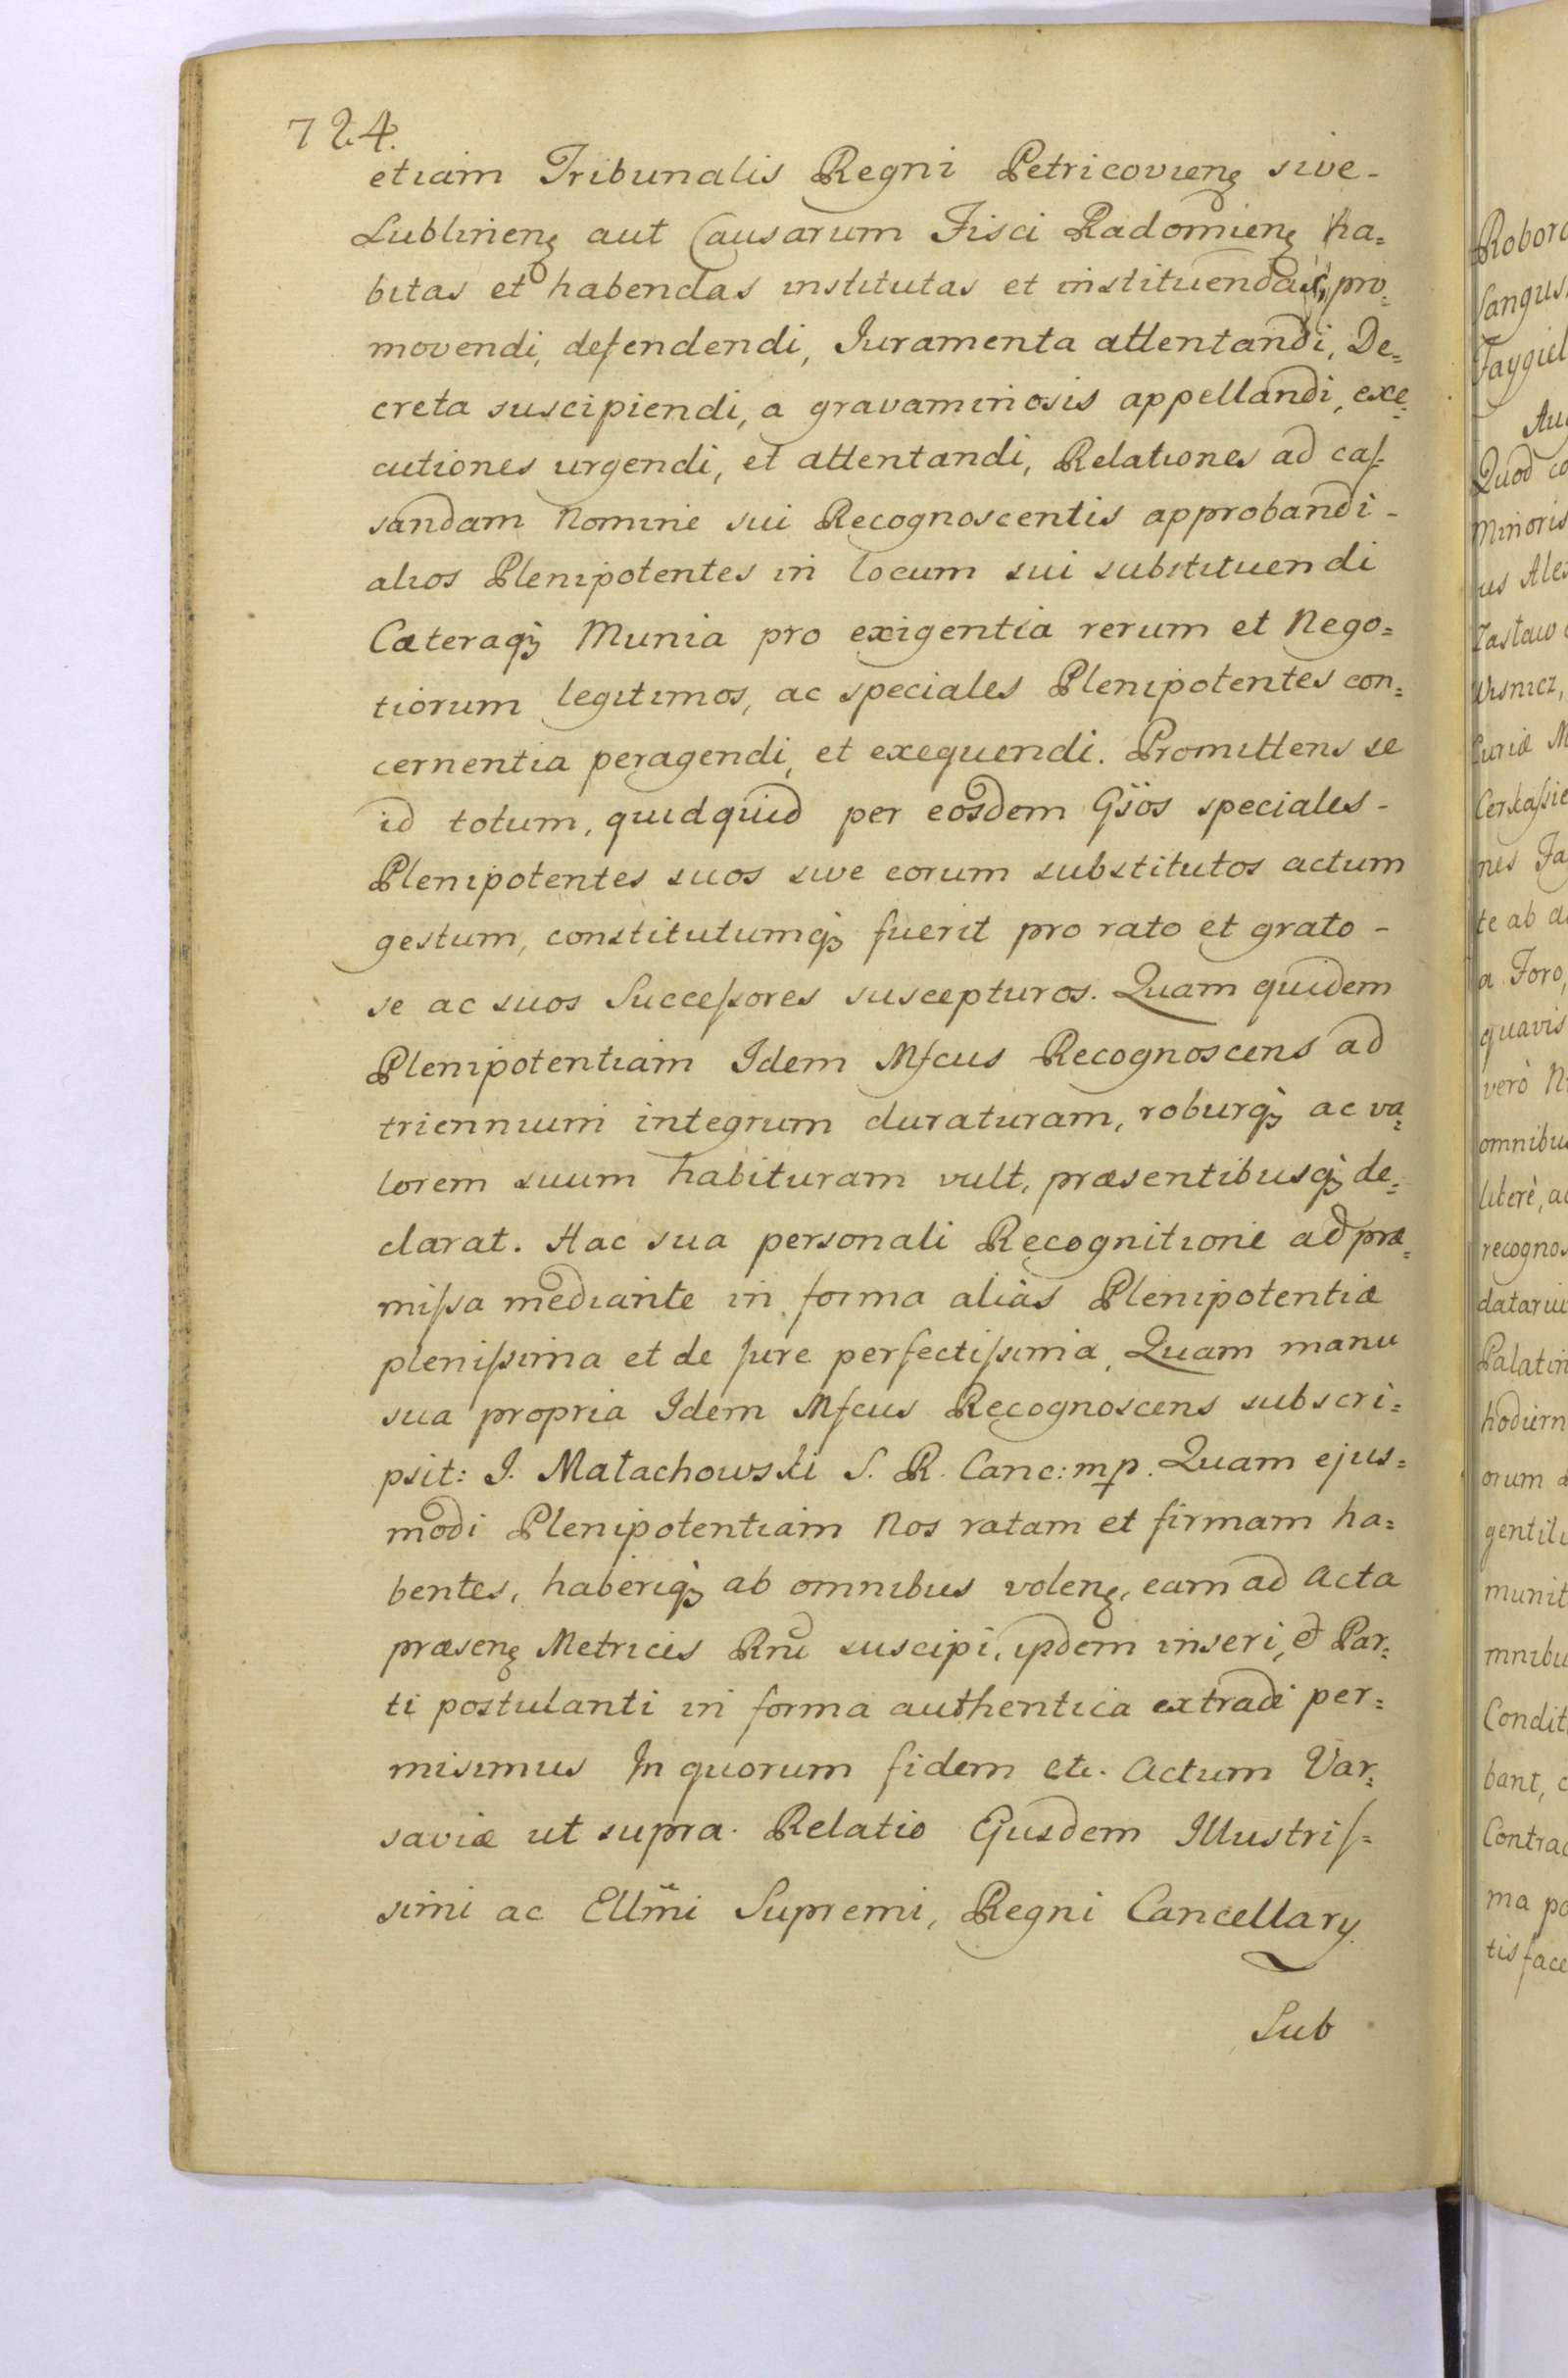 724.
etiam Tribunalis Regni Petricovienȩ sive-
Lublinenȩ aut Causarum Fisci Radomienȩ ha=
bitas et habendas institutas et instituendas, pro=
movendi, defendendi, Iuramenta attentandi, De=
creta suscipiendi, a gravaminosis appellandi, exe=
cutiones urgendi, et attentandi, Relationes ad caſ=
sandam Nomine sui Recognoscentis approbandi-
alios Plenipotentes in locum sui substituendi
Cæteraqꝫ Munia pro exigentia rerum et Nego=
tiorum legitimos, ac speciales Plenipotentes con=
cernentia peragendi, et exequendi. Promittens se
id totum, quidquid per eosdem Gsös speciales-
Plenipotentes suos sive eorum substitutos actum
gestum, constitutumqꝫ fuerit pro rato et grato-
se ac suos Succeſsores suscepturos. Quam quidem
Plenipotentiam Idem Mfcus Recognoscens ad
triennium integrum duraturam, roburqꝫ ac va=
lorem suum habituram vult, præsentibusqꝫ de=
clarat. Hac sua personali Recognitione ad præ=
miſsa mediante in forma aliàs Plenipotentiæ
pleniſsima et de Jure perfectiſsima, Quam manu
sua propria Idem Mfcus Recognoscens subscri=
psit: J. Małachowski S. R. Canc: mp. Quam ejus=
modi Plenipotentiam Nos ratam et firmam ha=
bentes, haberiqꝫ ab omnibus volenȩ, eam ad Acta
præsenȩ Metrices Rnĩ suscipi, ijsdem inseri, et Par=
ti postulanti in forma authentica extradi per=
misimus In quorum fidem etc. Actum Var=
saviæ ut supra. Relatio Ejusdem Illustriſ=
simi ac Ellm̃i Supremi, Regni Cancellary.
Sub
Robor
Sangus
Faygiel
Quod co
Minoris
us Ale
Zastaw
Wisnicz,
Curiæ M
Cerkaſsie
nes Fa
te ab a
a Foro,
quavis
verò N
omnibu
literè, a
recognos
datariu
Palatin
hodiern
orum
gentili
munit
mnibu
Condit
bant, c
Contrac
ma po
tisface